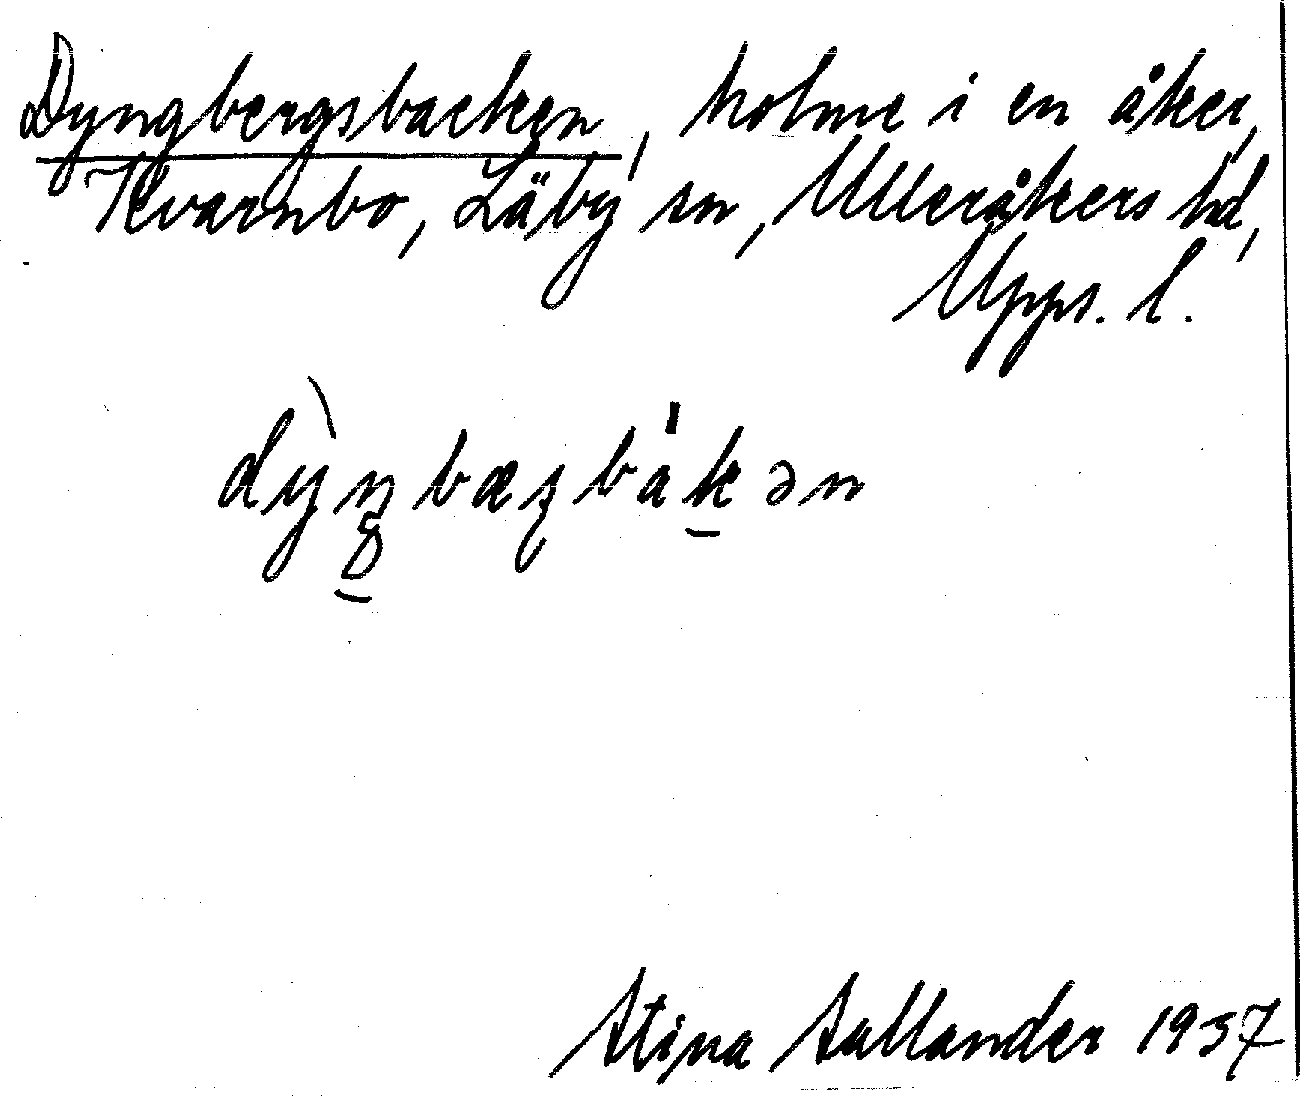 Dyngbergsbacken, holme i en åker,
Kvarnbo, Läby sn, Ulleråkers hd,
Upps. l.
Stina Sallander 1937